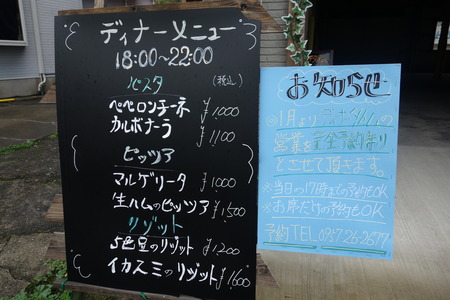 ディナーメニュー
18:00〜22:00
パスタ (税込)
ペペロンチーネ ¥1000
カルボナーラ ¥1100
ピッツア
マルゲリータ ¥1000
生ハムのピッツア ¥1,500
リゾット
5色豆のリゾット ¥1,200
イカスミのリゾット ¥1,600
お知らせ
※1月よりディナータイムの
営業を完全予約制り
とさせて頂きます。
※当日の17時までの予約もOK
※お席だけの予約もOK
予約TEL 0957-26-2677